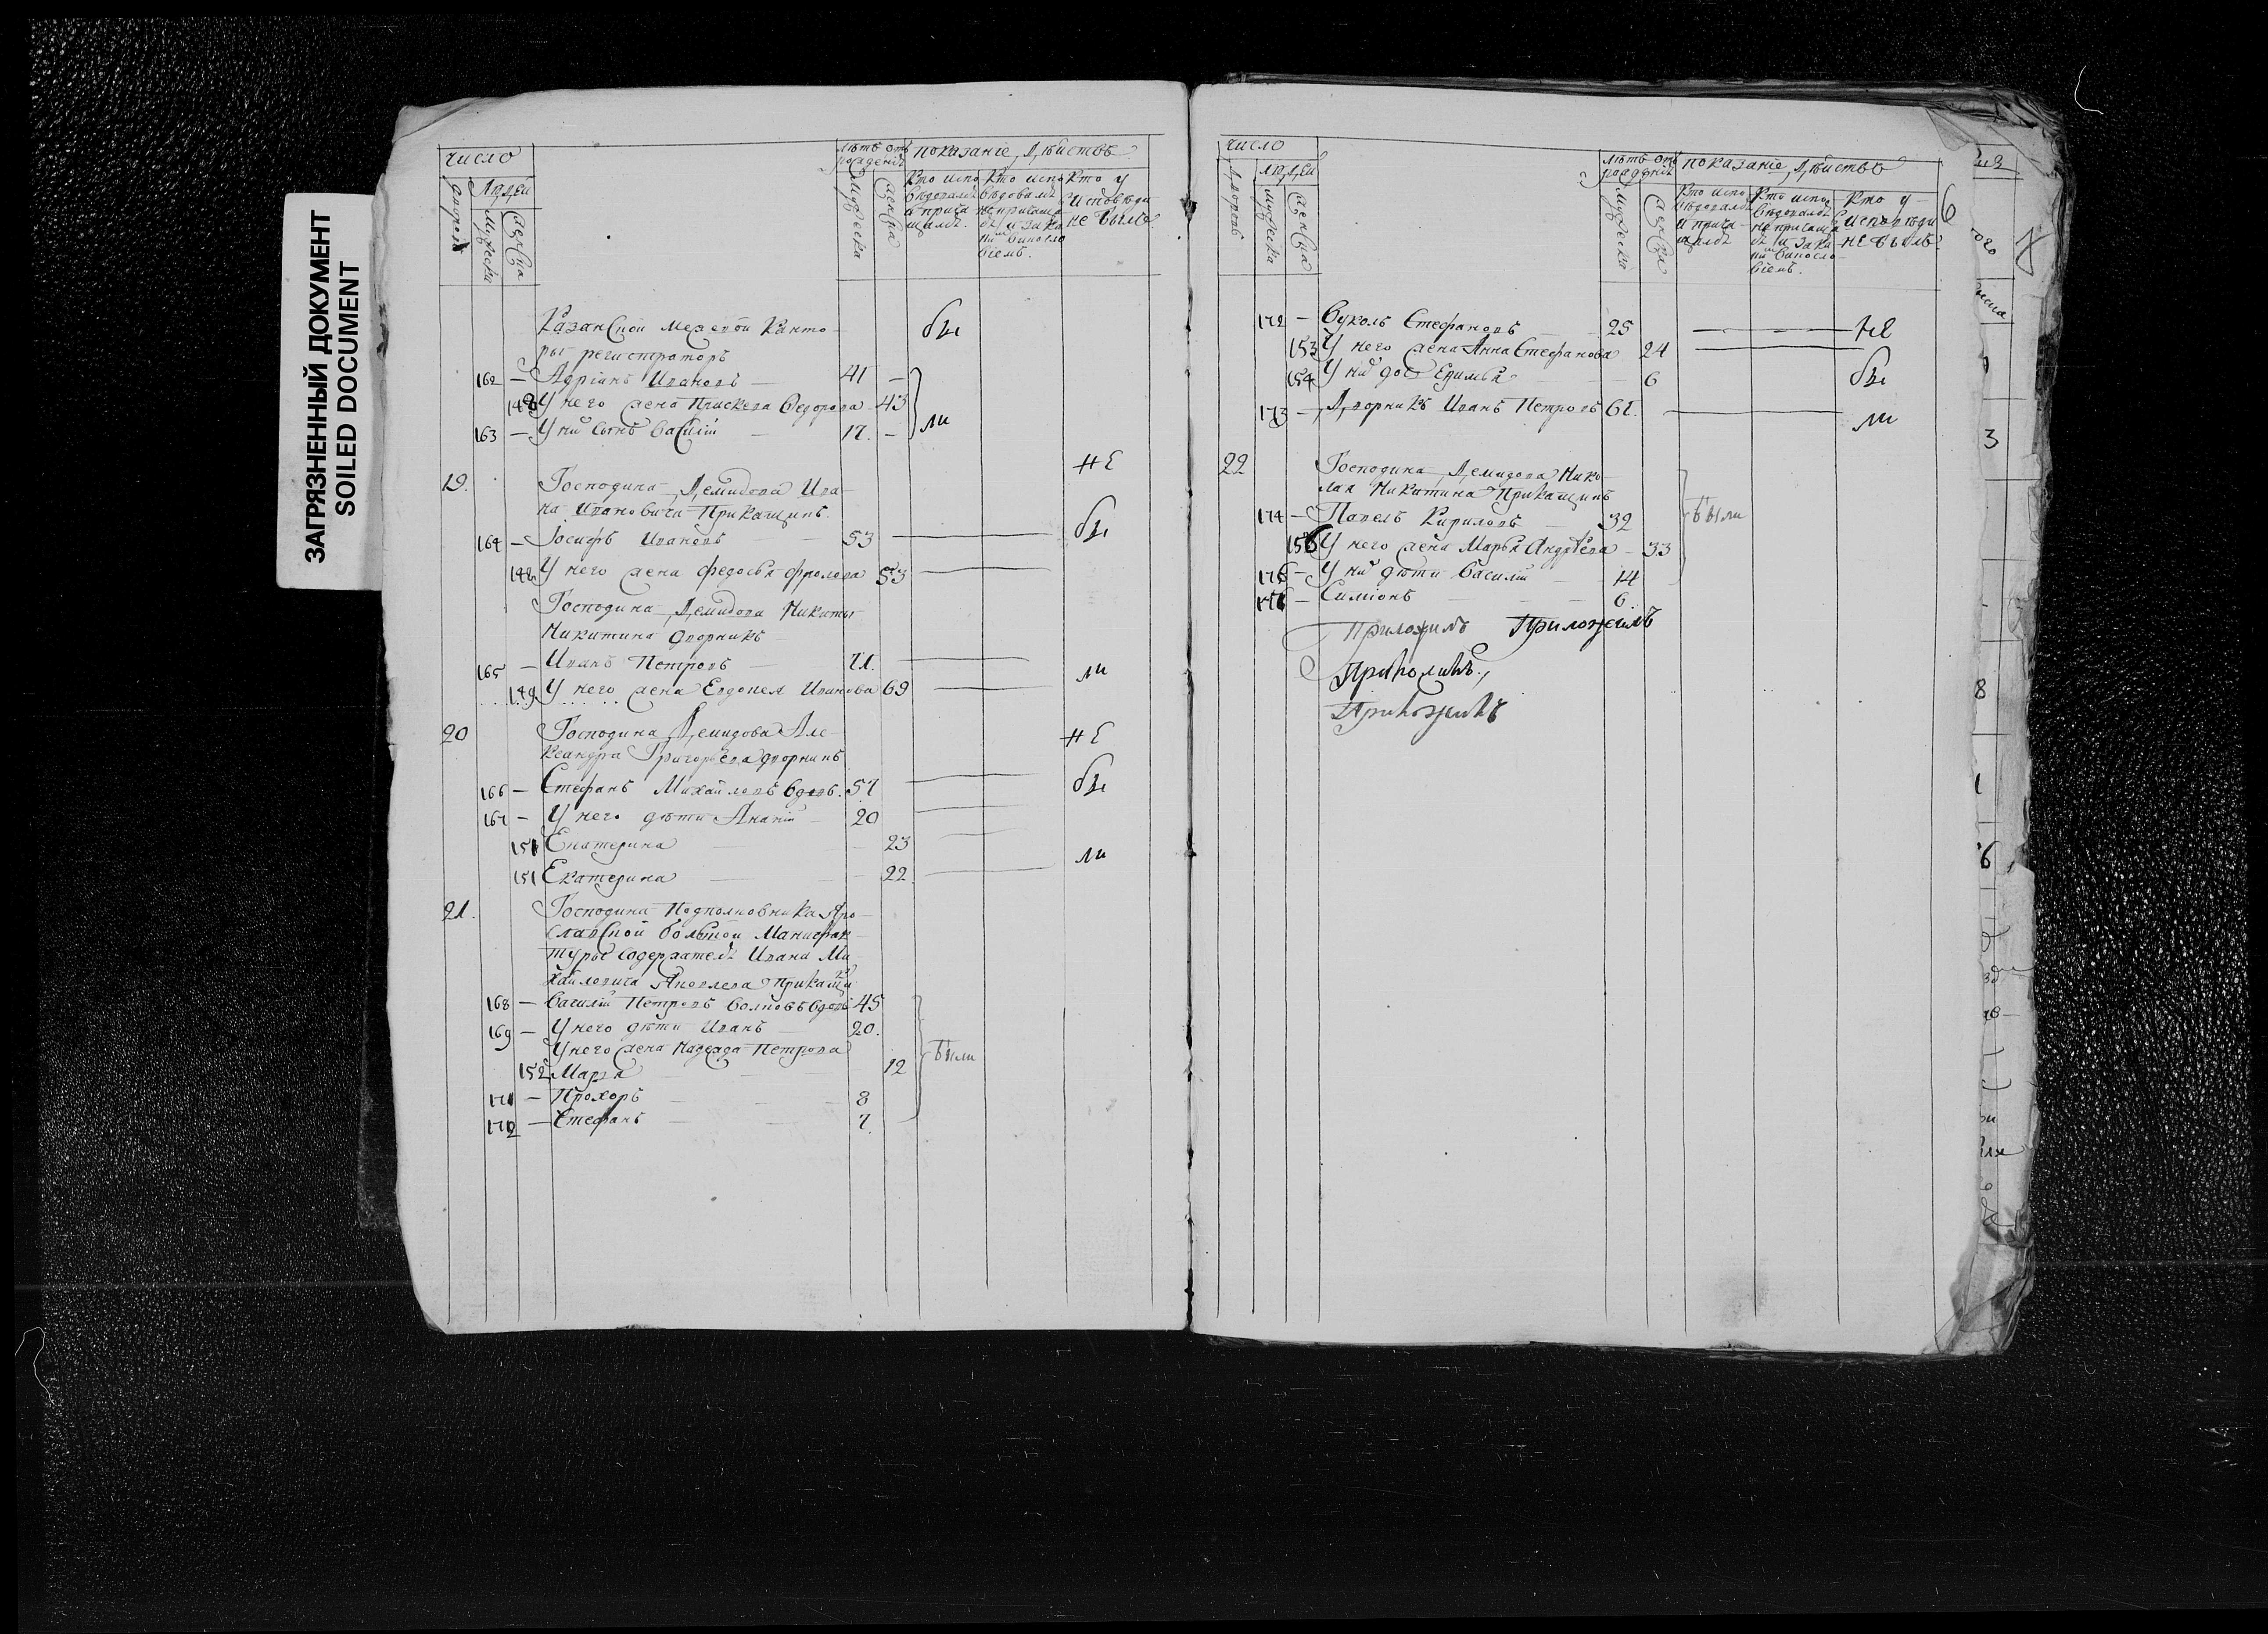 ЗАГРЯЗНЕННЫЙ ДОКУМЕНТ
SOILED DOCUMENT
число
людей
дворовъ
мужеска
женска
лѣтъ отъ
рожденія
мужеска
женска
показаніе дѣйствъ
Кто испо
вѣдовалъ
и прича
щалсѧ.
Кто испо
вѣдовалъ
не прича
и за ка
ким винос
ловіемъ.
Кто у
исповѣди
не былъ
Казанской межевой канто
ры регистраторъ
бы
162 — Адріанъ Ивановъ — 41 —
148 У него жена Праскева Федорова 43
ли
163 — У них сынъ Василій — 17. —
19. Господина Демидова Ива
на Ивановича Прикащикъ
не
164 — Іосифъ Ивановъ — 53
бы
148 У него жена Федосья Фролова 53
Господина Демидова Никиты
Никитина дворникъ
165 — Иванъ Петровъ — 71.
ли
149 У него жена Евдокея Иванова 69
20 Господина Демидова Але
ксандра Григорьева дворникъ
не
166 — Стефанъ Михайловъ вдовъ. 57
бы
167 — У него дѣти Ананій — 20
151 Екатерина — 23
ли
151 Екатерина — 22
21. Господина Подполковника Яро
славской большой Мануфак
туры содержателя Ивана Ми
хайловича Яковлева Прикащи
168 — Василій Петровъ Волковъ вдовъ 45
169 — У него дѣти Иванъ — 20.
У него жена Надежда Петрова
были
152 Марья — 12
171 — Прохоръ — 8
172 — Стефанъ — 7.
число
людей
дворовъ
мужеска
женска
лѣтъ отъ
рожденія
мужеска
женска
показаніе дѣйствъ
Кто испо
вѣдовалъ
и прича
щалсѧ
Кто испо
вѣдовалъ
не прича
и за ка
ким винос
ловіемъ.
Кто у
исповѣди
не былъ
6
172 — Вуколъ Стефановъ — 25
не
153 У него жена Анна Стефанова 24
154 У них дочь — 6
бы
173 — Дворникъ Иванъ Петровъ 61.
ли
22 Господина Демидова Нико
лая Никитина Прикащикъ
174 — Павелъ Кириловъ — 32
были
156 У него жена Марья Андреева — 33
176 — У них дѣти Василій — 14
176 — Симіонъ — 6.
Приложилъ Приложенъ
Приложилъ